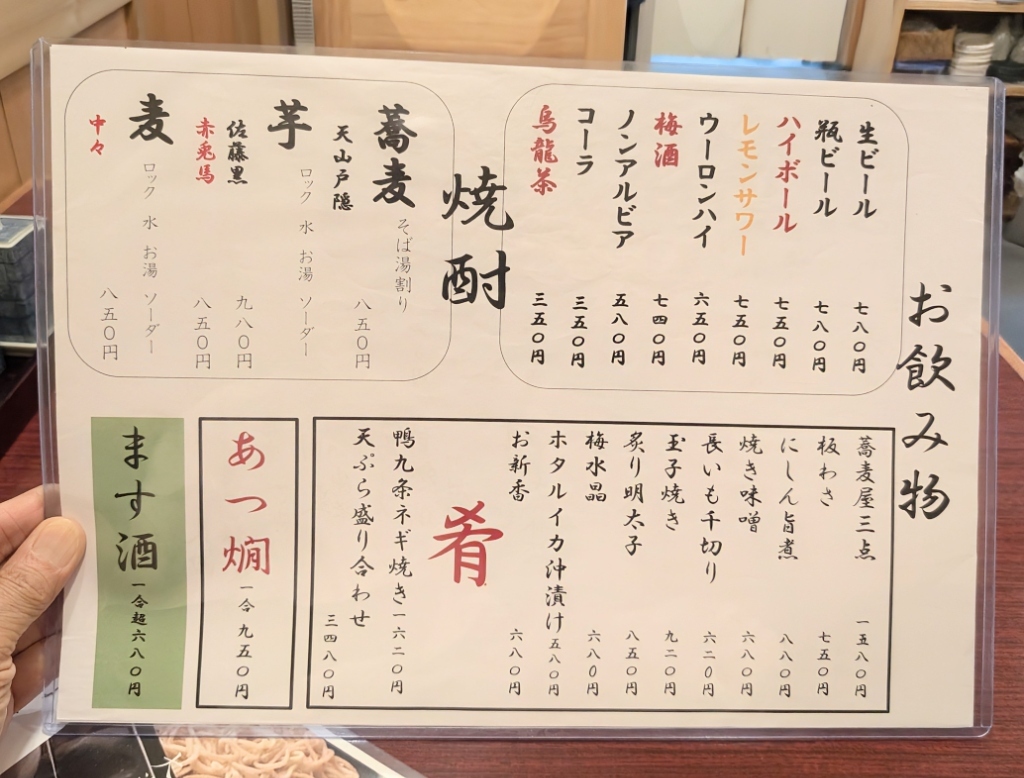 お飲み物
生ビール 七八〇円
瓶ビール 七八〇円
ハイボール 七五〇円
レモンサワー 七五〇円
ウーロンハイ 六五〇円
梅酒 七四〇円
ノンアルビア 五八〇円
コーラ 三五〇円
烏龍茶 三五〇円
焼酎
蕎麦 そば湯割り
天山戸隠 八五〇円
芋 ロック 水 お湯 ソーダー
佐藤黒 九八〇円
赤兎馬 八五〇円
麦 ロック 水 お湯 ソーダー
中々 八五〇円
蕎麦屋三点 一五八〇円
板わさ 七五〇円
にしん旨煮 八八〇円
焼き味噌 六八〇円
長いも千切り 六二〇円
玉子焼き 九二〇円
炙り明太子 八五〇円
梅水晶 六八〇円
ホタルイカ沖漬け 五八〇円
お新香 六八〇円
肴
鴨九条ネギ焼き 一六二〇円
天ぷら盛り合わせ 三四八〇円
あつ燗 一合 九五〇円
ます酒 一合超 六八〇円